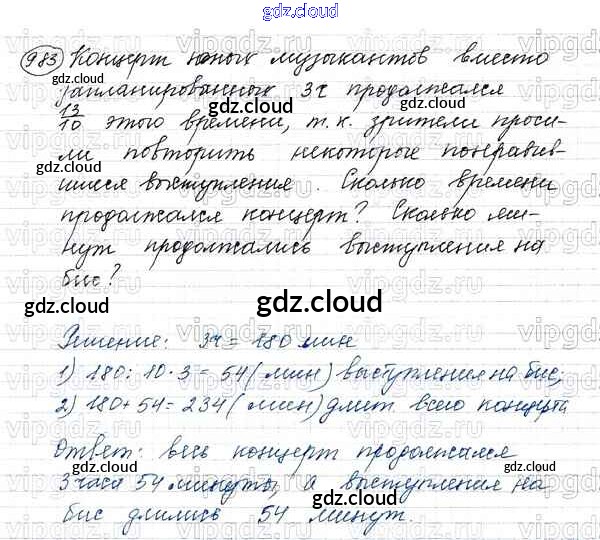 gdz.cloud
983 Концерт юных музыкантов вместо
запланированных 3ч продолжался
13/10 этого времени, т.к. зрители проси-
ли повторить некоторые понравив-
шиеся выступления. Сколько времени
продолжался концерт? Сколько ми-
нут продолжались выступления на
бис?
gdz.cloud
Решение: 3ч = 180 мин
1) 180 : 10 · 3 = 54 (мин) выступления на бис;
2) 180 + 54 = 234 (мин) длит. всего концерта
Ответ: весь концерт продолжался
3 часа 54 минуты, а выступления на
бис длились 54 минут.